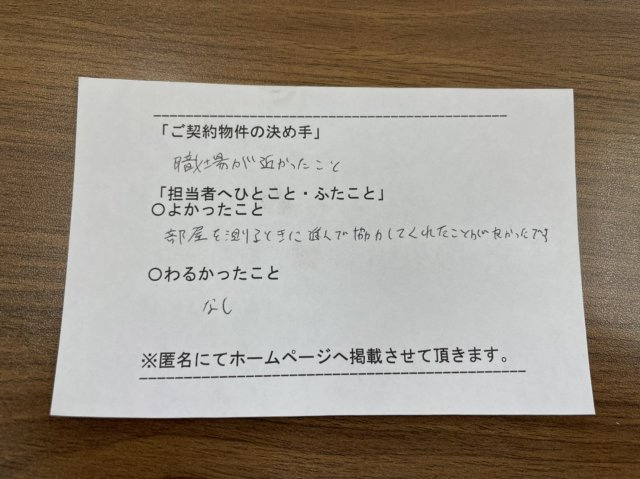 「ご契約物件の決め手」
職場が近かったこと
「担当者へひとこと・ふたこと」
○よかったこと
部屋を測るときに進んで協力してくれたことがよかったです
○わるかったこと
なし
※匿名にてホームページへ掲載させて頂きます。